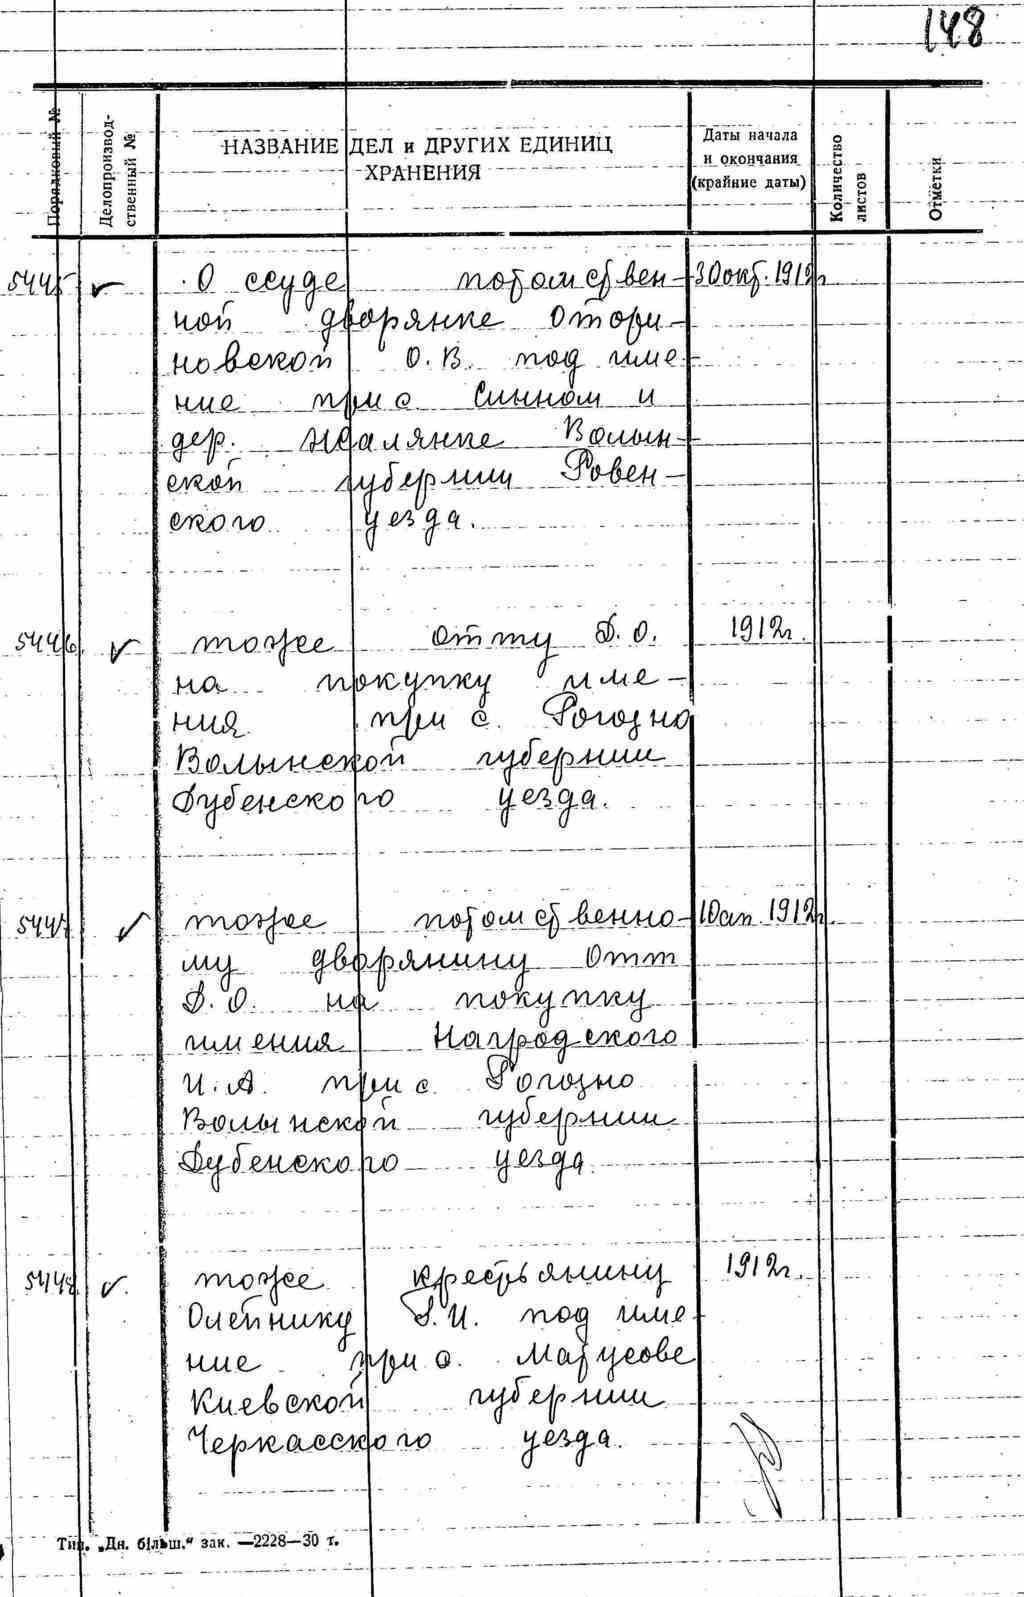 148
Порядковый №
Делопроизвод-
ственный №
НАЗВАНИЕ ДЕЛ и ДРУГИХ ЕДИНИЦ
ХРАНЕНИЯ
Даты начала
и окончания
(крайние даты)
Количество
листов
Отметки
5445 О ссуде потомствен- 30 окт. 1912г
ной дворянке Отори-
новской О.В. под име-
ние при с. Синном и
дер. Жалянке Волын-
ской губернии Ровен-
ского уезда.
5446. тоже Отту Д.О. 1912г.
на покупку име-
ния при с. Рогозно
Волынской губернии
Дубенского уезда.
5447 тоже потомственно- 10 ап. 1912г.
му дворянину Отт
Д.О. на покупку
имения Нагродского
И.А. при с. Рогозно
Волынской губернии
Дубенского уезда
5448 тоже крестьянину 1912г.
Олейнику И. под име-
ние при с. Матусове
Киевской губернии
Черкасского уезда.
Тип. „Дн. більш.“ зак. —2228—30 т.